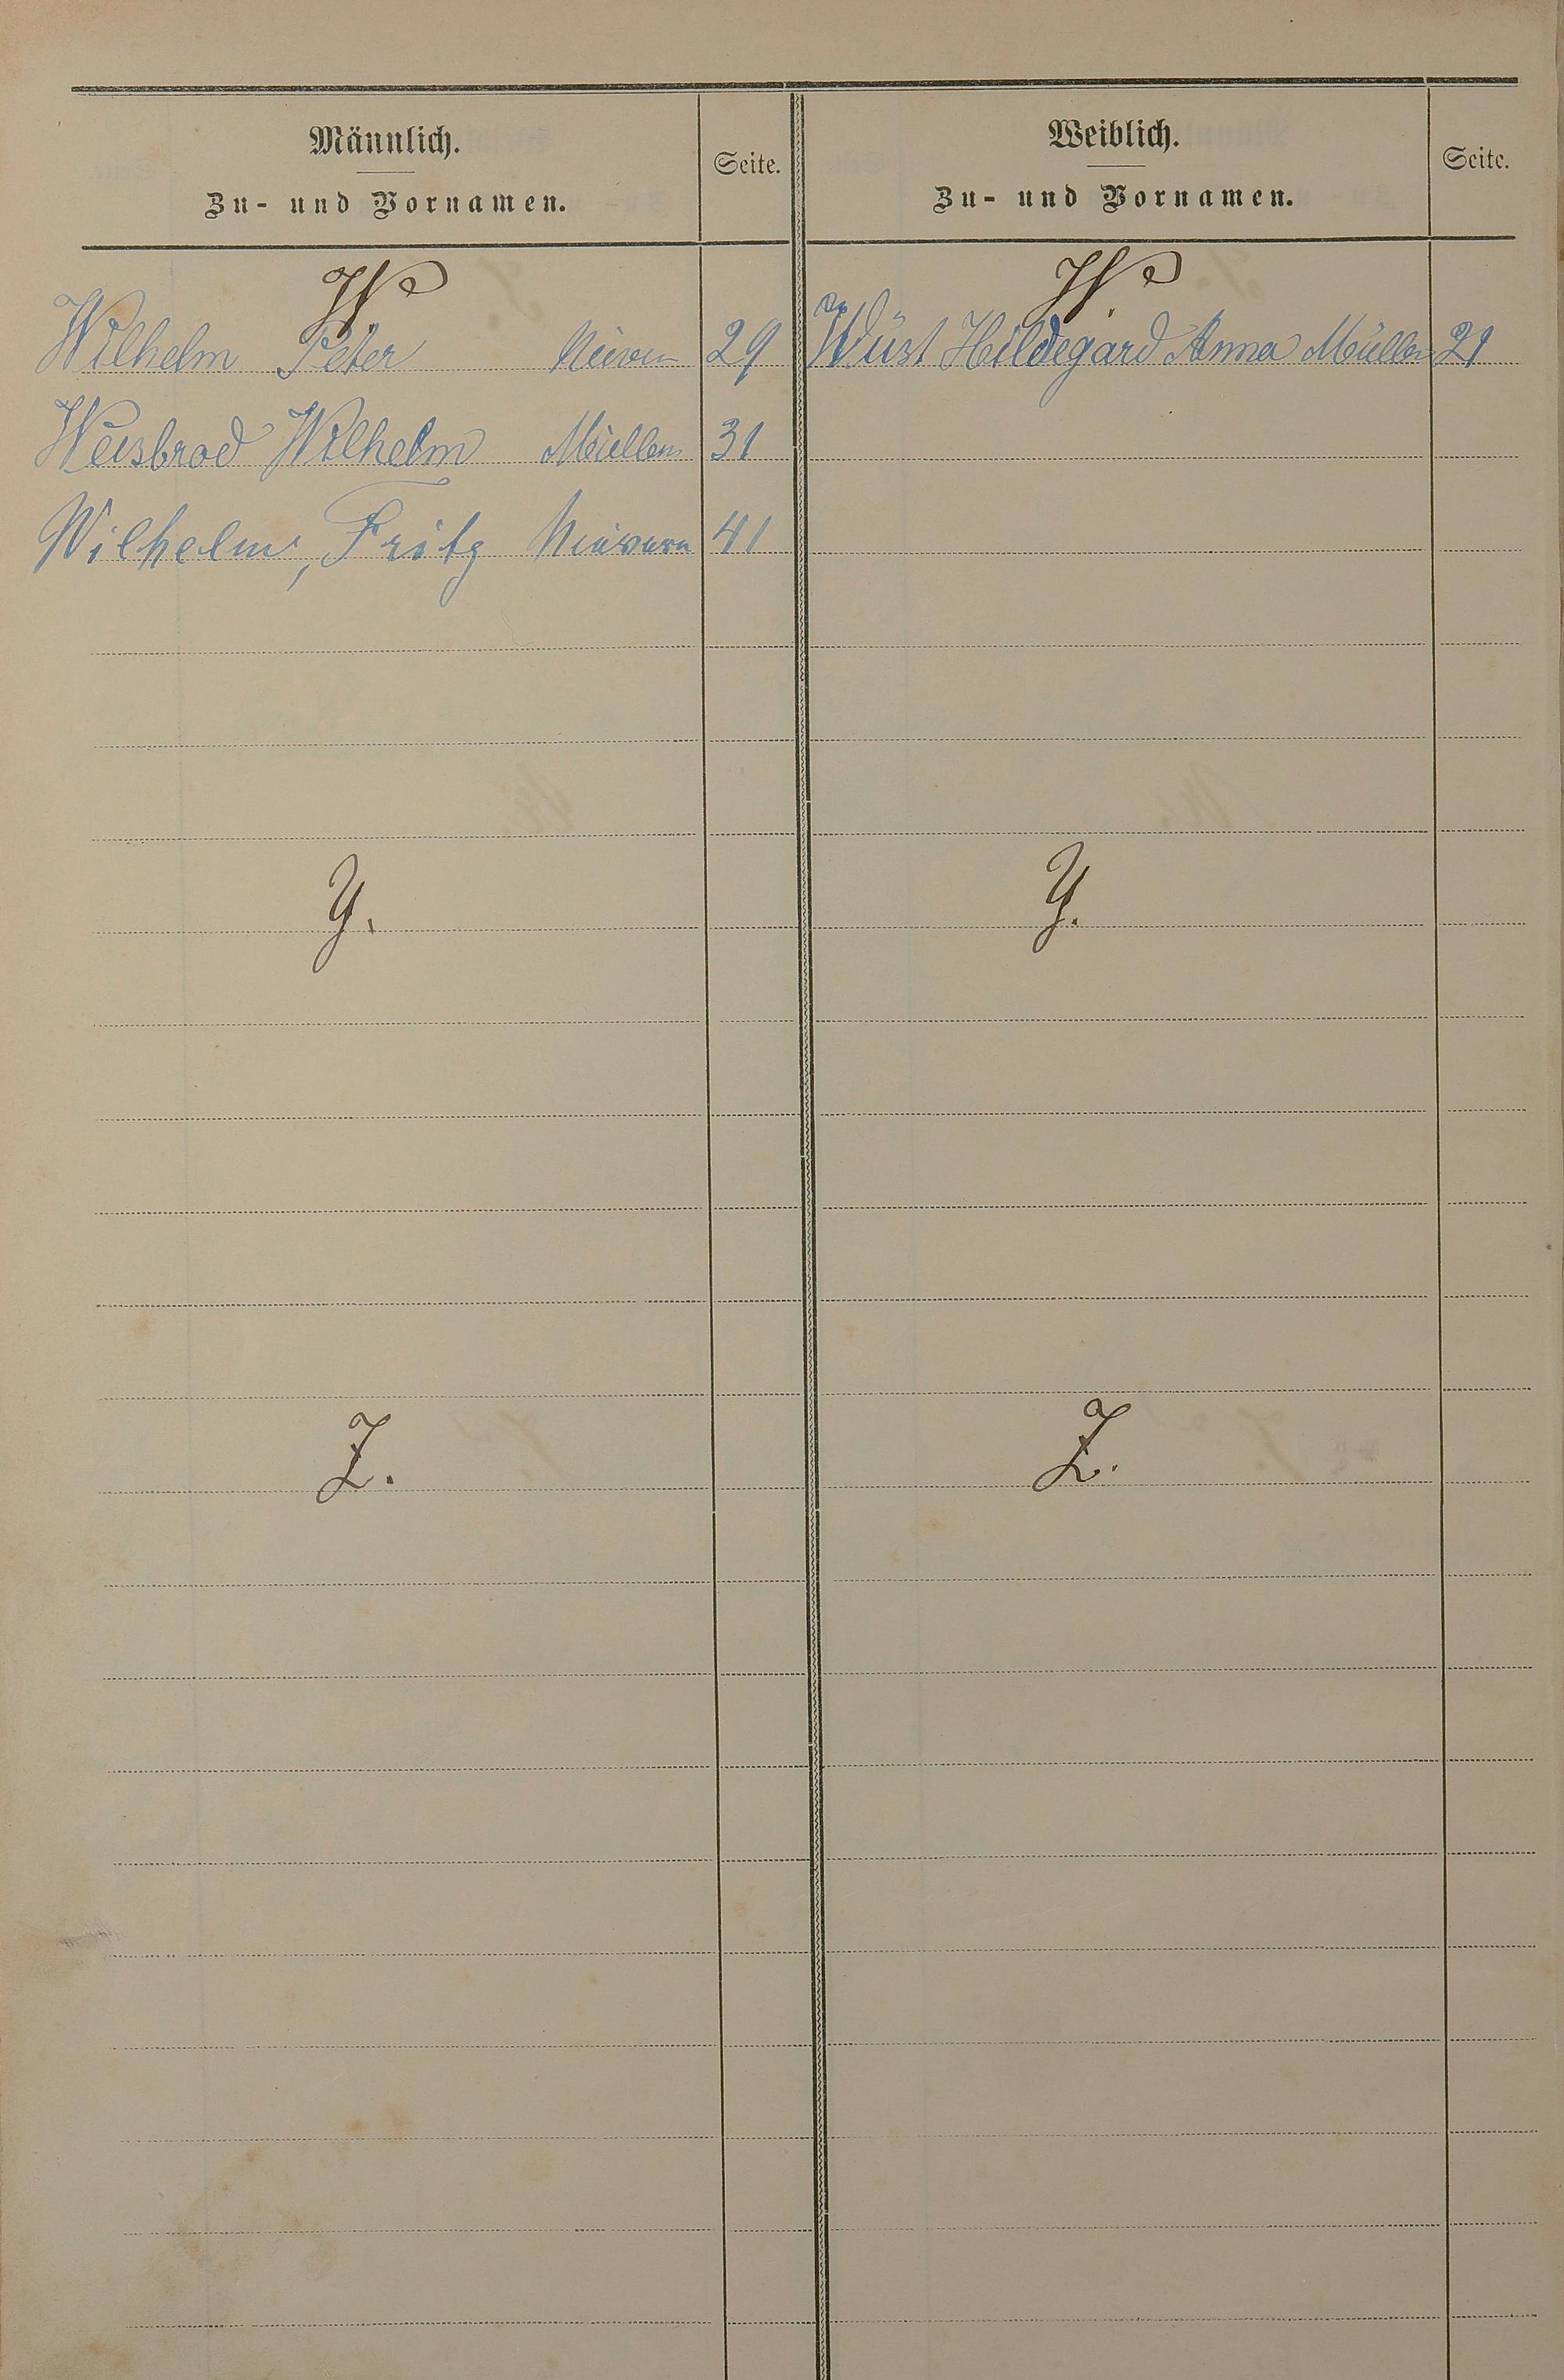 Männlich.
Zu- und Vornamen.
Seite.
Weiblich.
Zu- und Vornamen.
Seite.
W
Wilhelm Peter 29
Weisbrod Wilhelm Müllen 31
Wilhelm, Fritz Nievern 41
W.
Wüst Hildegard Anna Müllen 21
Y.
Y.
Z.
Z.